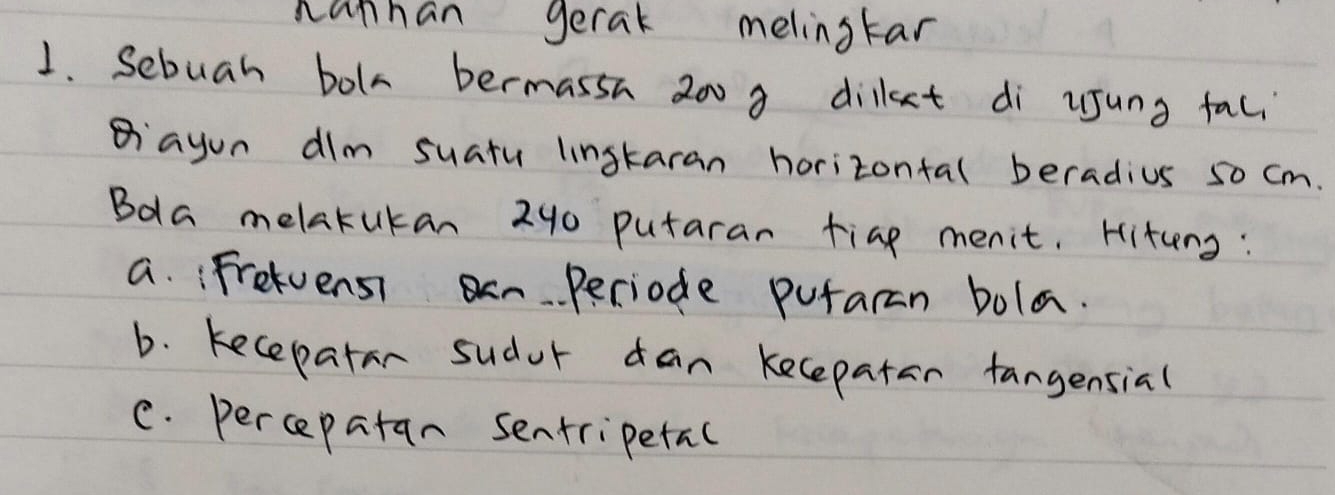 Latihan gerak melingkar
1. Sebuah bola bermassa 200 g diikat di ujung tali
diayun dlm suatu lingkaran horizontal beradius 50 cm.
Bola melakukan 240 putaran tiap menit. Hitung :
a. Frekuensi dan Periode putaran bola.
b. kecepatan sudut dan kecepatan tangensial
c. percepatan sentripetal